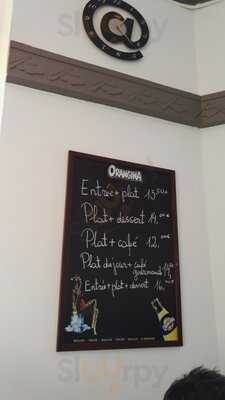 ORANGINA
Entrée + plat 13,50€
Plat + dessert 14,
Plat + café 12,
Plat du jour + café
gourmand 14,
Entrée + plat + dessert 16,